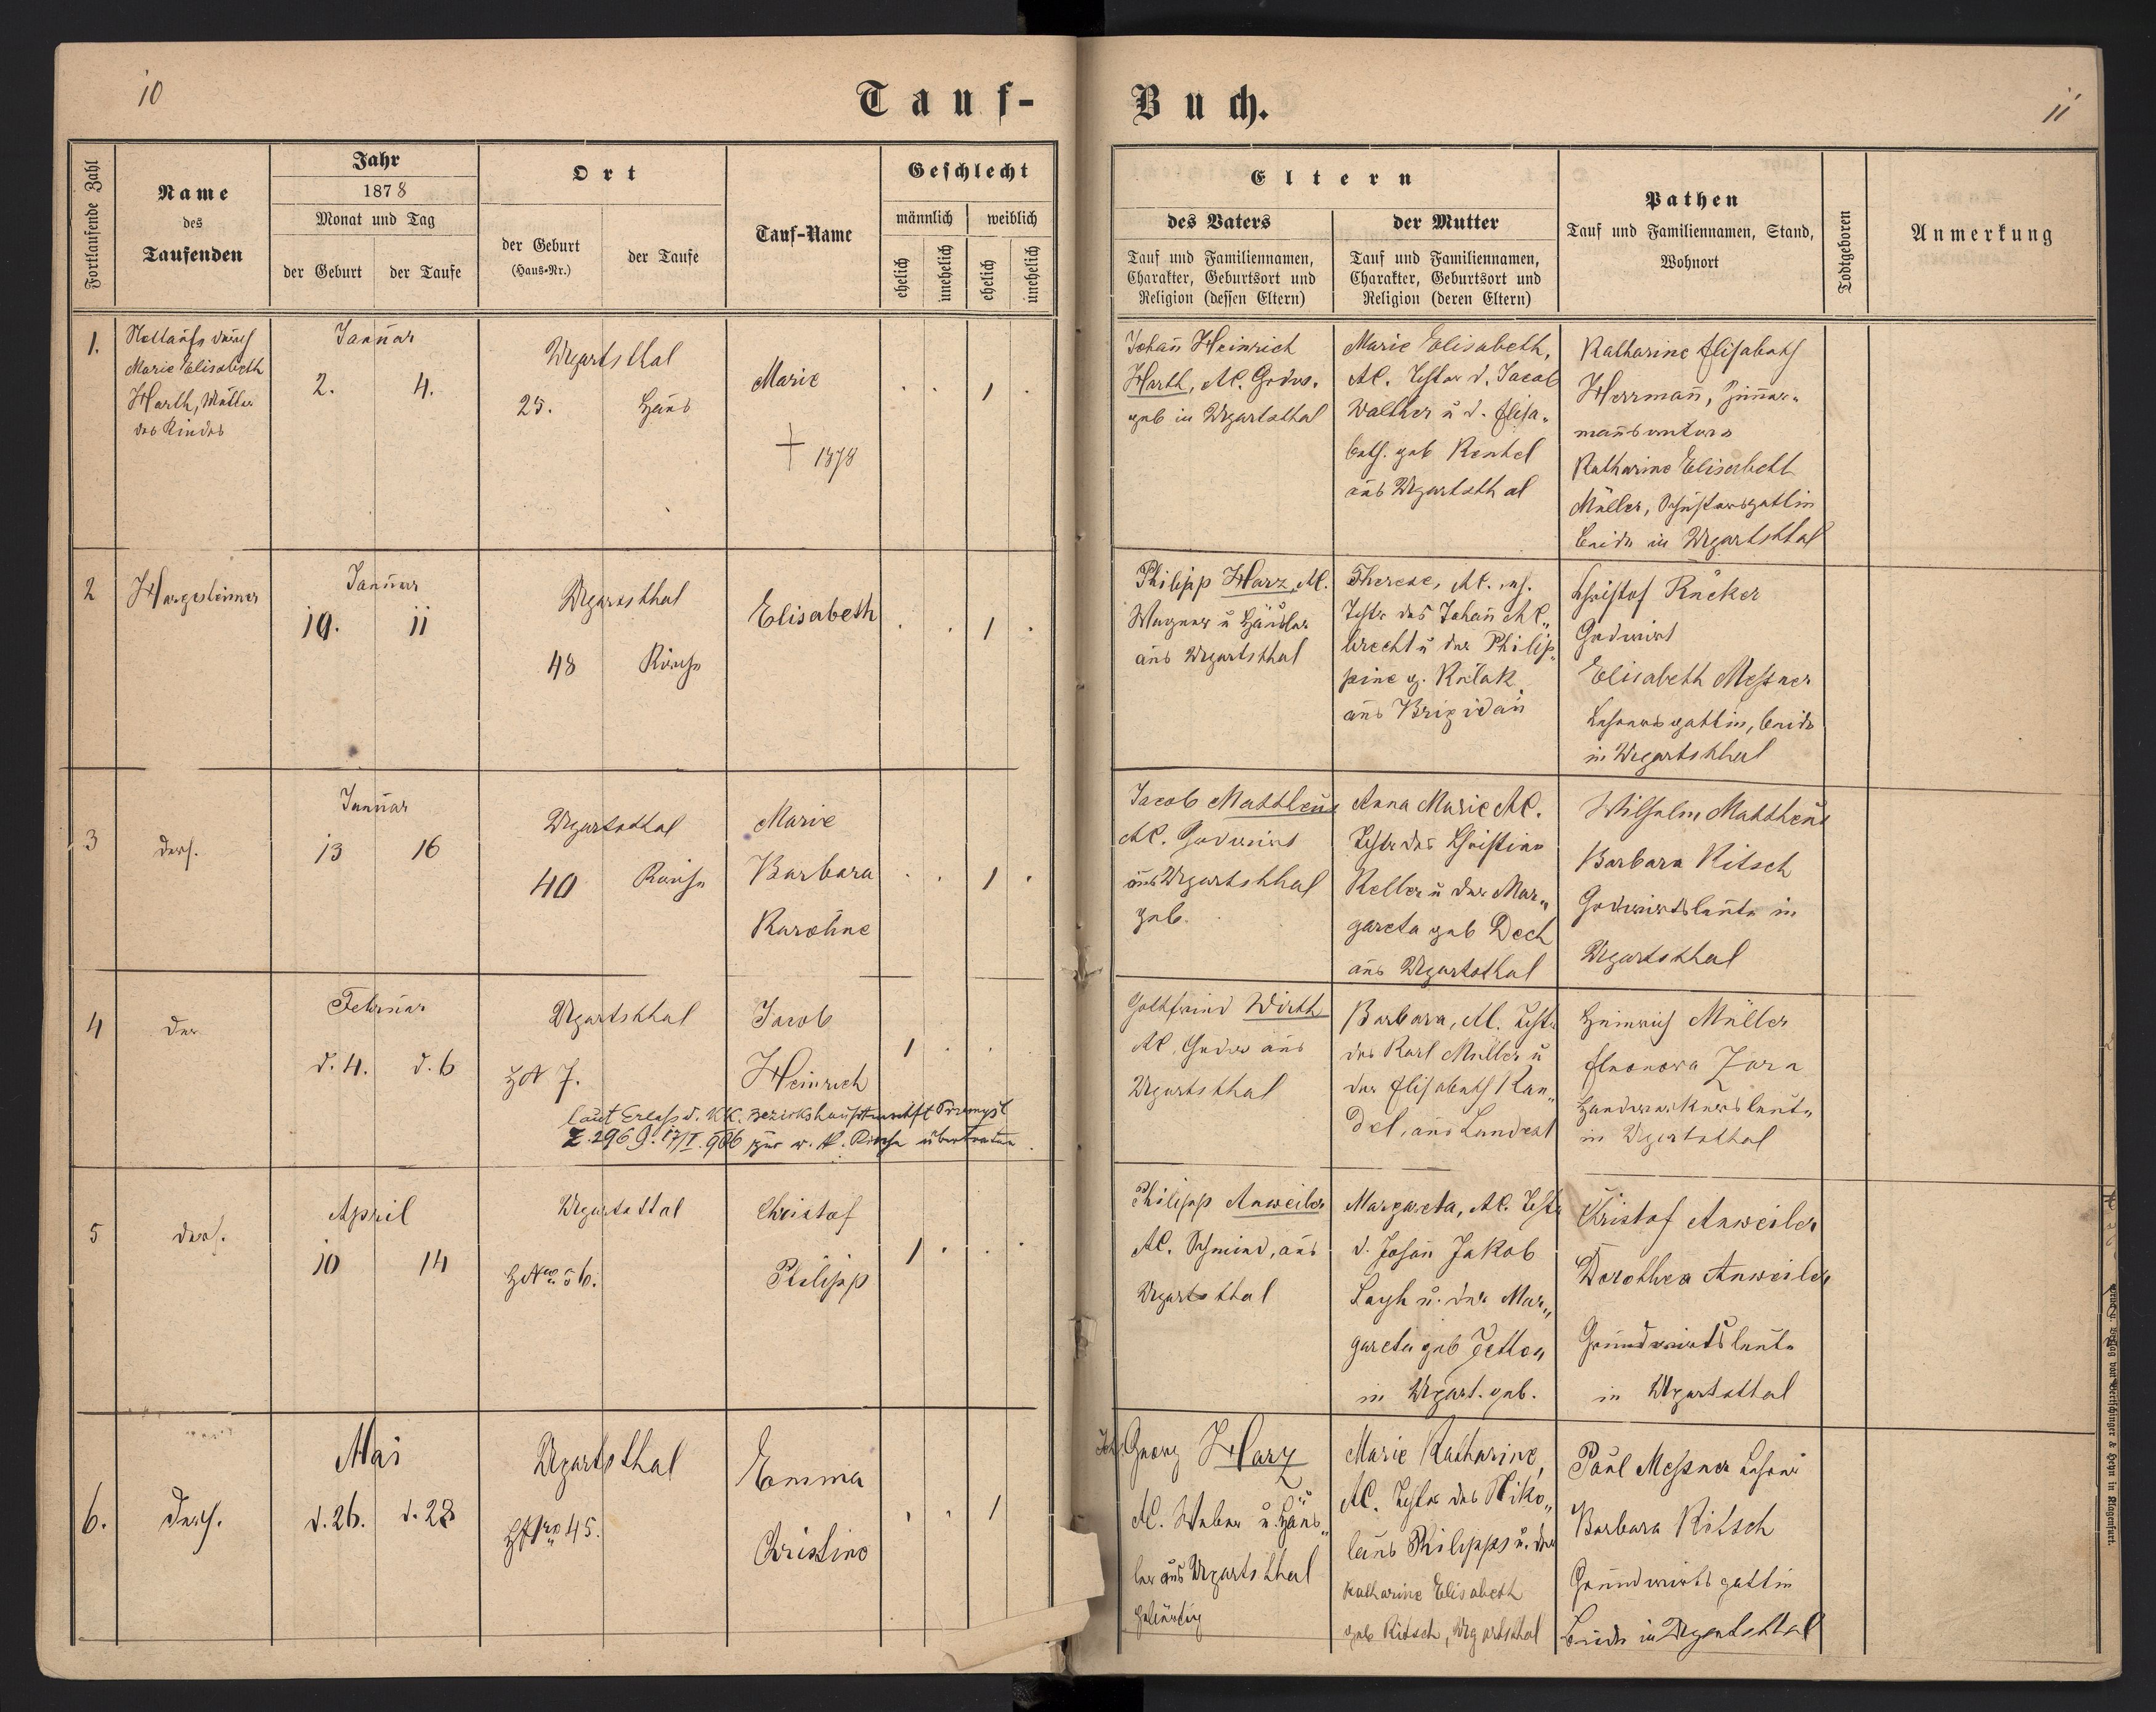 10
Tauf-
Buch.
11
Fortlaufende Zahl
Name
des
Taufenden
Jahr
1878
Monat und Tag
der Geburt
der Taufe
Ort
der Geburt
(Haus-Nr.)
der Taufe
Tauf-Name
Geschlecht
männlich
weiblich
ehelich
unehelich
ehelich
unehelich
Eltern
des Vaters
Tauf und Familiennamen,
Charakter, Geburtsort und
Religion (dessen Eltern)
der Mutter
Tauf und Familiennamen,
Charakter, Geburtsort und
Religion (deren Eltern)
Pathen
Tauf und Familiennamen, Stand,
Wohnort
Todtgeboren
Anmerkung
1.
Nottaufe durch
Marie Elisabeth
Harth, Mutter
des Kindes
Januar
2.
4.
Ugartsthal
25.
Haus
Marie
† 1878
1
Johann Heinrich
Harth, AC. Grdw.
geb in Ugartsthal
Marie Elisabeth,
AC. Tochter d. Jacob
Walther u d. Elisa-
beth. geb
aus Ugartsthal
Katharine Elisabeth
Herrmann, Zimmer-
manns
Katharine Elisabeth
Müller, Schustersgattin
beide in Ugartsthal
2
Hargesheimer
Januar
10.
11
Ugartsthal
48
Kirche
Elisabeth
1
Philipp Harz, AC.
Wagner u Häusler
aus Ugartsthal
Therese, AC.
Tocht. des Johann Al-
brecht u der Philip-
pine g.
aus Brigidau
Christof Rücker
Grdwirt
Elisabeth Messner
Lehrersgattin, beide
in Ugartsthal
3
ders.
Januar
13
16
Ugartsthal
40
Kirche
Marie
Barbara
Karoline
1
Jacob Mattheus
AC. Grdwirt
aus Ugartsthal
geb.
Anna Marie AC.
Tocht des Christian
Keller u der Mar-
gareta geb Dech
aus Ugartsthal
Wilhelm Mattheus
Barbara Ritsch
Grdwirtsleute in
Ugartsthal
4
der
Februar
d. 4.
d. 6
Ugartsthal
HN 7.
Jacob
Heinrich
1
laut Erlass d. KK. Bezirkshauptmannschaft Przemysl
Z. 2969. 17/I. 906 zur r. k. Kirche übertreten
Gottfried Wirth
AC, Grdw aus
Ugartsthal
Barbara, AC. Tocht.
des Karl Müller u
der Elisabeth Kan-
del, aus Landestr
Heinrich Müller
Eleonora Zorn
Handwerkersleute
in Ugartsthal
5
ders.
April
10
14
Ugartsthal
HNro 56.
Christof
Philipp
1
Philipp Anweiler
AC. Schmied, aus
Ugartsthal
Margareta, AC. Tocht
d. Johann Jakob
u. der Mar-
gareta geb
in Ugart. geb.
Kristof Anweiler
Dorothea Anweiler
Grundwirtsleute
in Ugartsthal
6.
ders.
Mai
d. 26.
d. 28
Ugartsthal
HNro 45.
Emma
Christine
1
Joh. Georg Harz
AC. Weber u. Häus-
ler aus Ugartsthal
gebürtig
Marie Katharine,
AC. Tochter des Niko-
laus Philipps u. der
Katharine Elisabeth
geb Ritsch, Ugartsthal
Paul Messner Lehrer
Barbara Ritsch
Grundwirtsgattin
beide in Ugartsthal
Verlag von Bertschinger & Heyn in Klagenfurt.